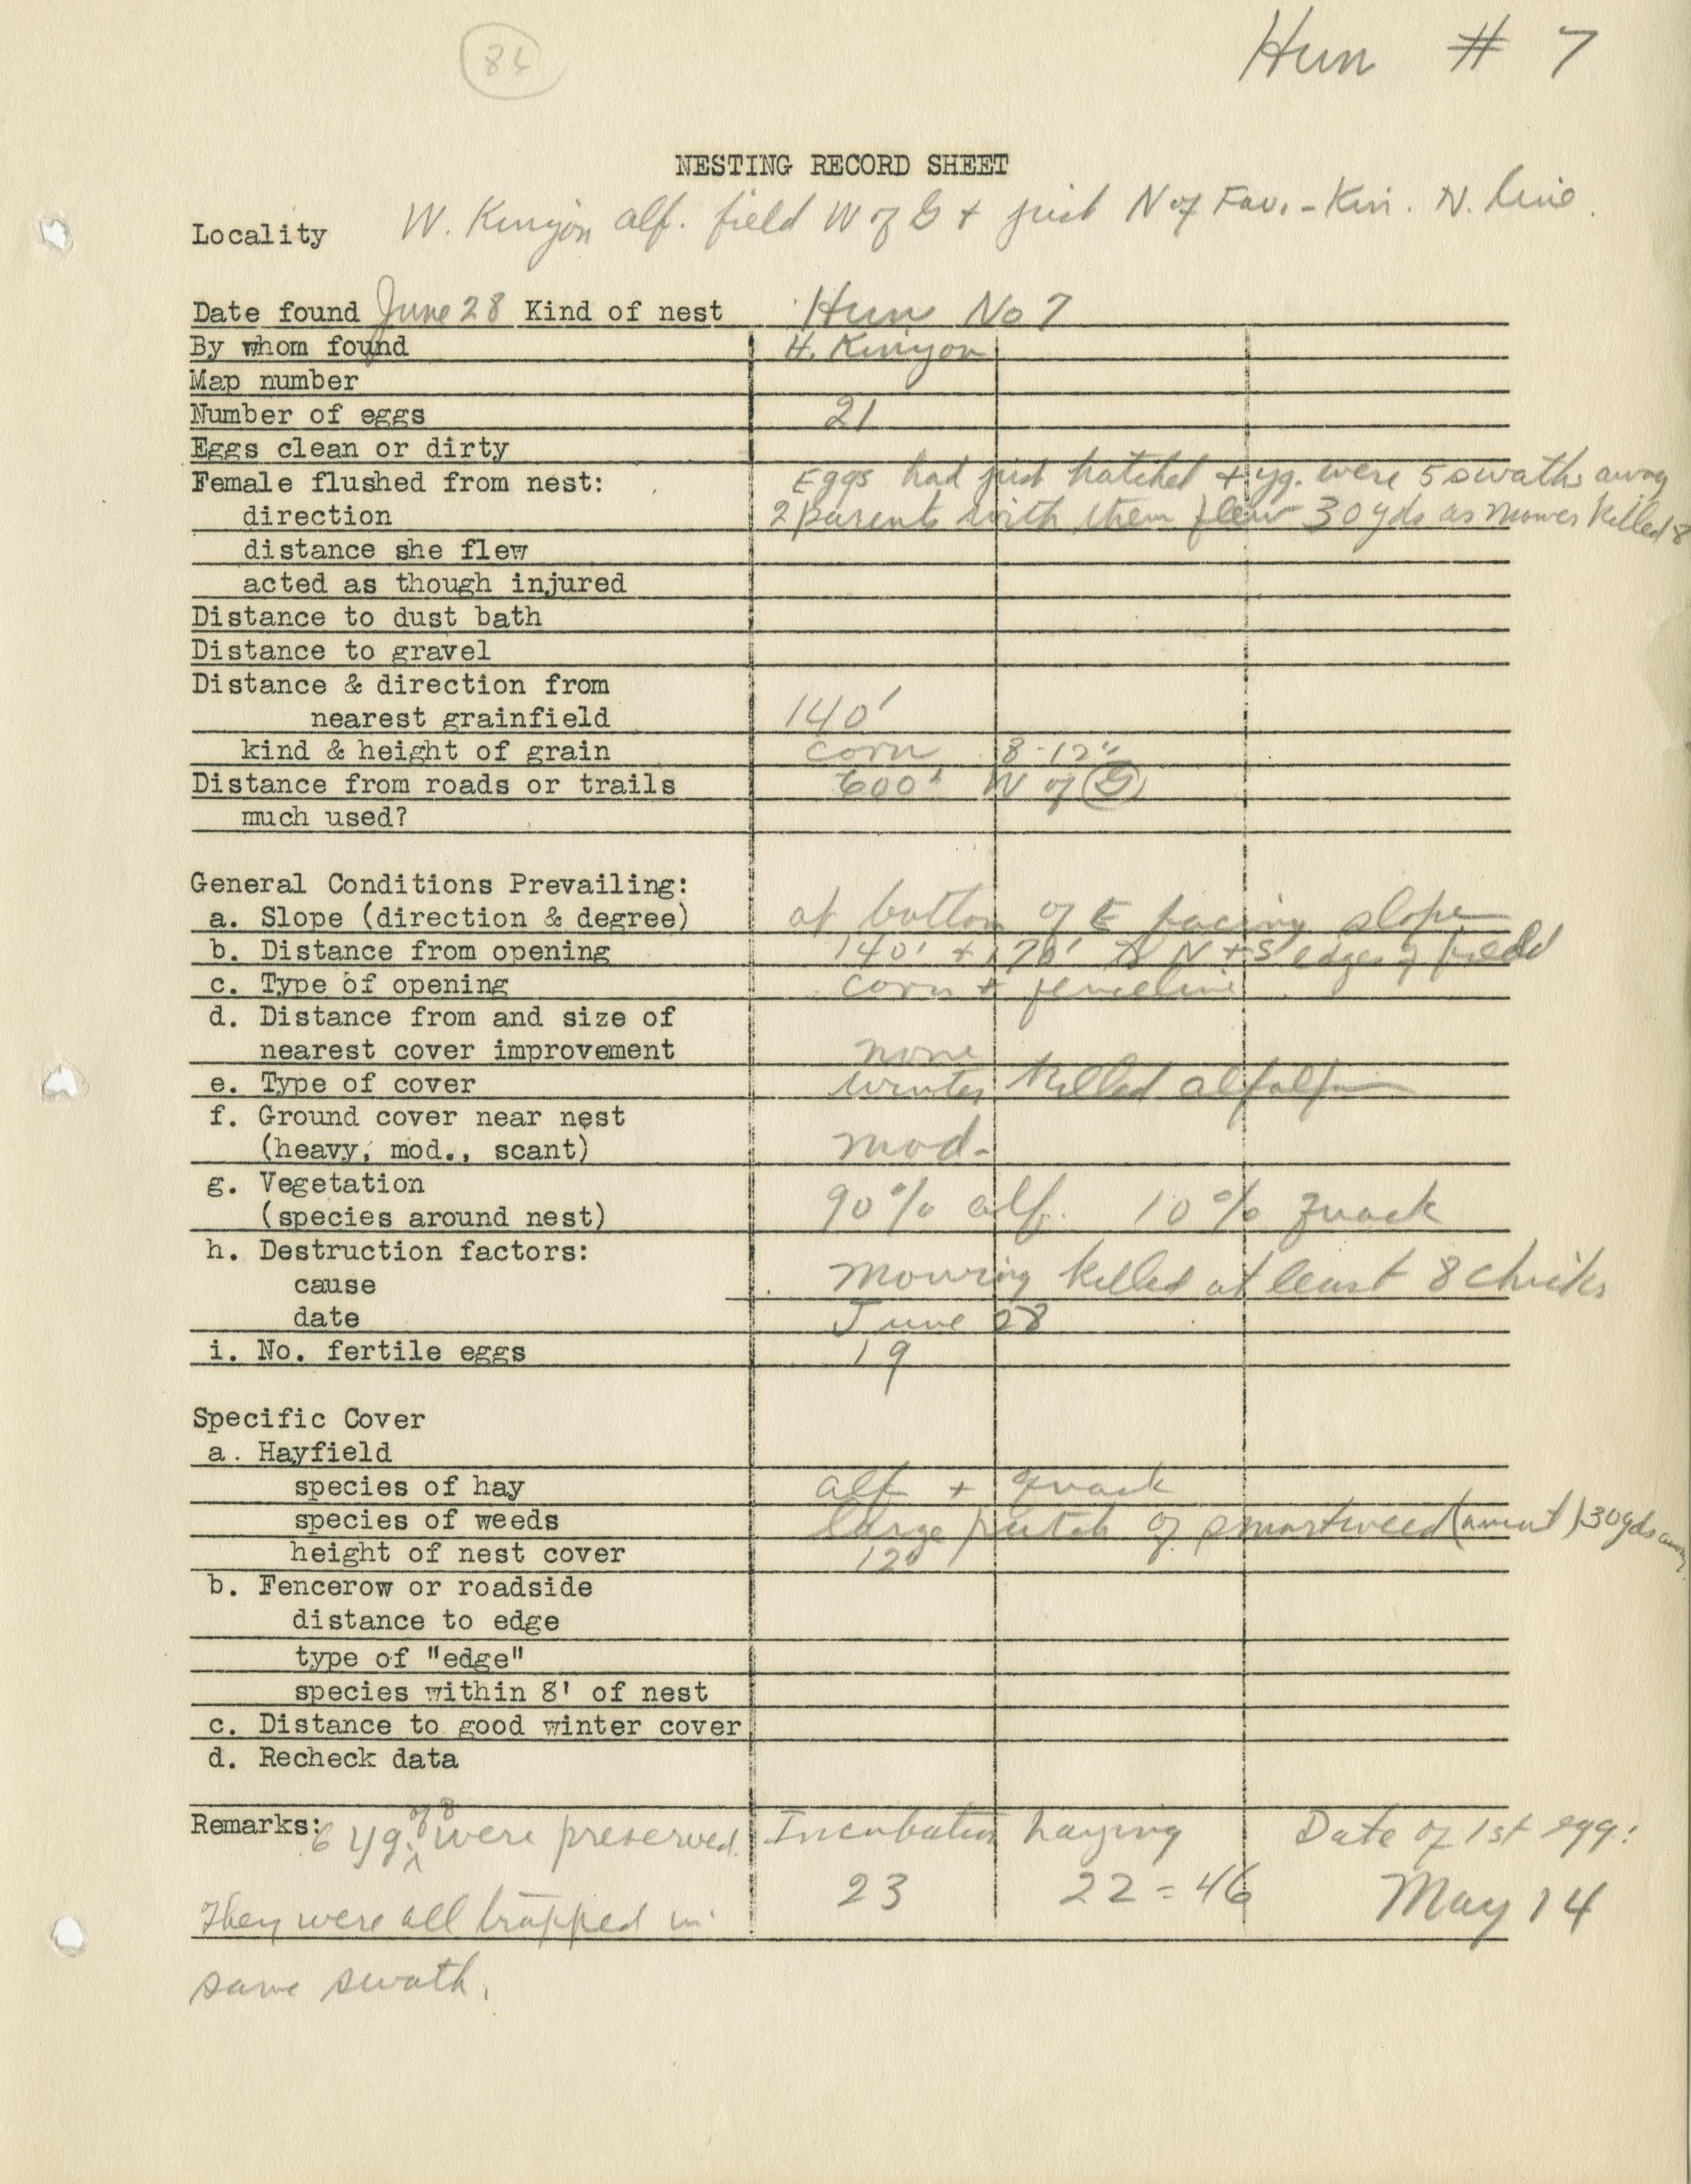 Hun # 7
NESTING RECORD SHEET
Locality W. Kinyon alf. field W of G + just N of Fav. - Kin. N. line.
Date found June 28 Kind of nest Hun No 7
By whom found H. Kinyon
Map number
Number of eggs 21
Eggs clean or dirty
Female flushed from nest: Eggs had just hatched + yg. were 5 swaths away
direction 2 parents with them flew 30 yds as mower killed 8
distance she flew
acted as though injured
Distance to dust bath
Distance to gravel
Distance & direction from
nearest grainfield 140'
kind & height of grain corn 8-12"
Distance from roads or trails 600' W of G
much used?
General Conditions Prevailing:
a. Slope (direction & degree) at bottom of E facing slope
b. Distance from opening 140' + 170' to N + S edges of field
c. Type of opening corn + fenceline
d. Distance from and size of
nearest cover improvement none
e. Type of cover winter killed alfalfa
f. Ground cover near nest
(heavy, mod., scant) mod.
g. Vegetation
(species around nest) 90% alf. 10% quack
h. Destruction factors:
cause mowing killed at least 8 chicks
date June 28
i. No. fertile eggs 19
Specific Cover
a. Hayfield
species of hay alf + quack
species of weeds large patch of smartweed 30 yds away
height of nest cover 12"
b. Fencerow or roadside
distance to edge
type of "edge"
species within 8' of nest
c. Distance to good winter cover
d. Recheck data
Remarks: 6 yg. of 8 were preserved. Incubation Laying Date of 1st egg:
23 22 = 46 May 14
They were all trapped in
same swath.